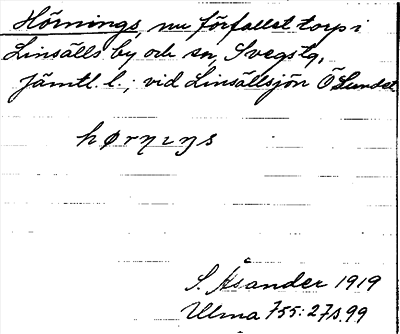 Hörnings, nu förfallet torp i
Linsälls by och sn, Svegs tg,
Jämtl. l.; vid Linsällsjön Ö Sundet
hørnıŋs
S. Åsander 1919
Ulma 755:27 s. 99